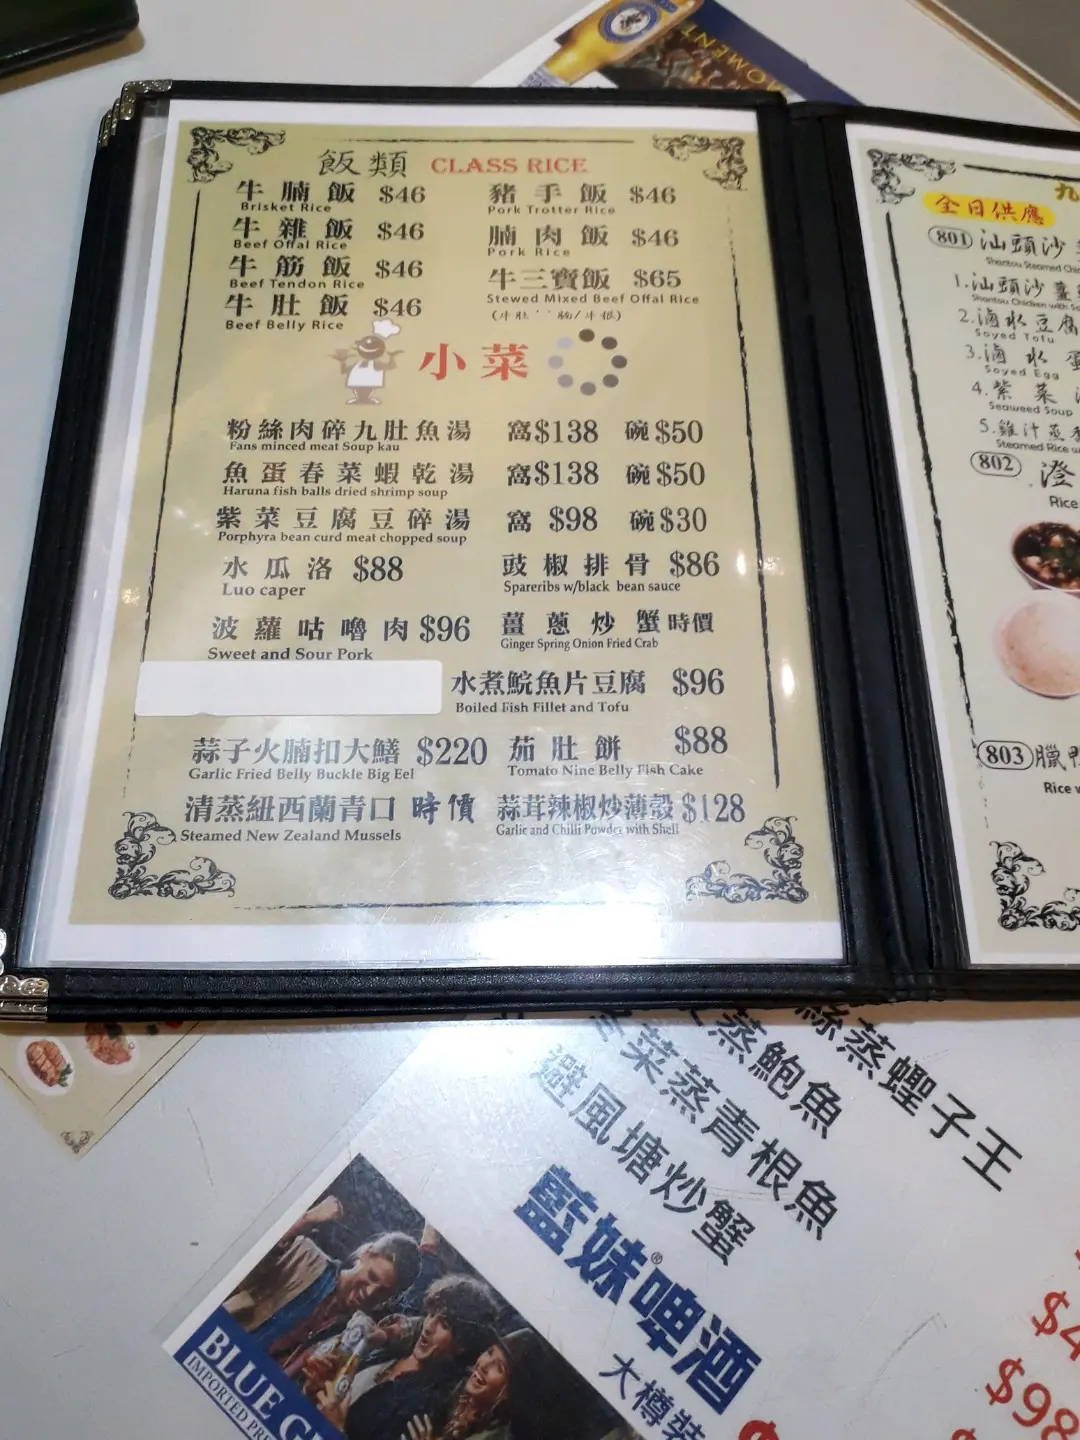 MOMENT
飯類 CLASS RICE
牛腩飯 $46
Brisket Rice
豬手飯 $46
Pork Trotter Rice
牛雜飯 $46
Beef Offal Rice
腩肉飯 $46
Pork Rice
牛筋飯 $46
Beef Tendon Rice
牛三寶飯 $65
Stewed Mixed Beef Offal Rice
牛肚飯 $46
Beef Belly Rice
小菜
粉絲肉碎九肚魚湯 窩$138 碗$50
Fans minced meat Soup kau
魚蛋春菜蝦乾湯 窩$138 碗$50
Haruna fish balls dried shrimp soup
紫菜豆腐豆碎湯 窩 $98 碗$30
Porphyra bean curd meat chopped soup
水瓜洛 $88
Luo caper
豉椒排骨 $86
Spareribs w/black bean sauce
波蘿咕嚕肉 $96
Sweet and Sour Pork
薑蔥炒蟹 時價
Ginger Spring Onion Fried Crab
水煮鯇魚片豆腐 $96
Boiled Fish Fillet and Tofu
蒜子火腩扣大鱔 $220
Garlic Fried Belly Buckle Big Eel
茄肚餅 $88
Tomato Nine Belly Fish Cake
清蒸紐西蘭青口 時價
Steamed New Zealand Mussels
蒜茸辣椒炒薄殼 $128
Garlic and Chilli Powder with Shell
九
全日供應
801 汕頭沙
Shantou Steamed
1.汕頭沙薑
Shantou Chicken with
2.滷水豆腐
Soyed Tofu
3.滷水蛋
Soyed Egg
4.紫菜
Seaweed Soup
5.雞汁蒸
Steamed Rice
802 澄
Rice
803 臘鴨
Rice
絲蒸蟶子王
蒸鮑魚
菜蒸青根魚
避風塘炒蟹
藍妹®啤酒
大樽裝
BLUE G
IMPORTED PRE
$4
$98